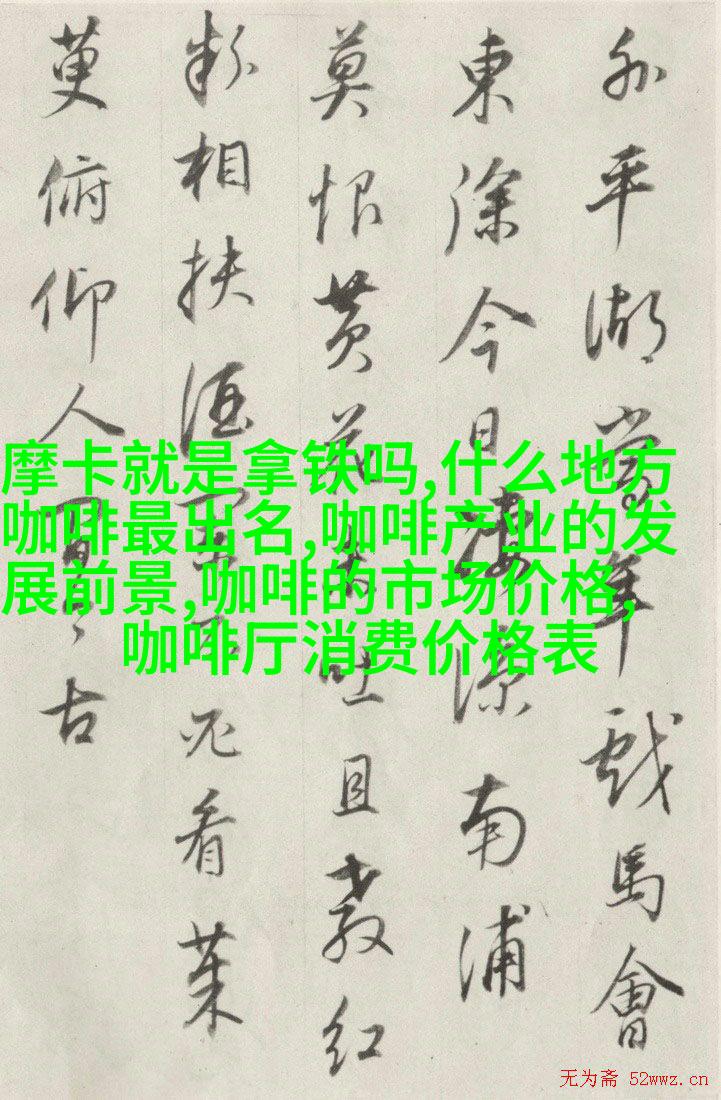 外平湖當年戲馬會
東徐今日凄涼南浦
莫恨黄花未吐且教红
粉相扶酒闌不必看茱
萸俯仰人間今古
摩卡就是拿铁吗,什么地方
咖啡最出名,咖啡产业的发
展前景,咖啡的市场价格,
咖啡厅消费价格表
无为斋 52wwz.cn